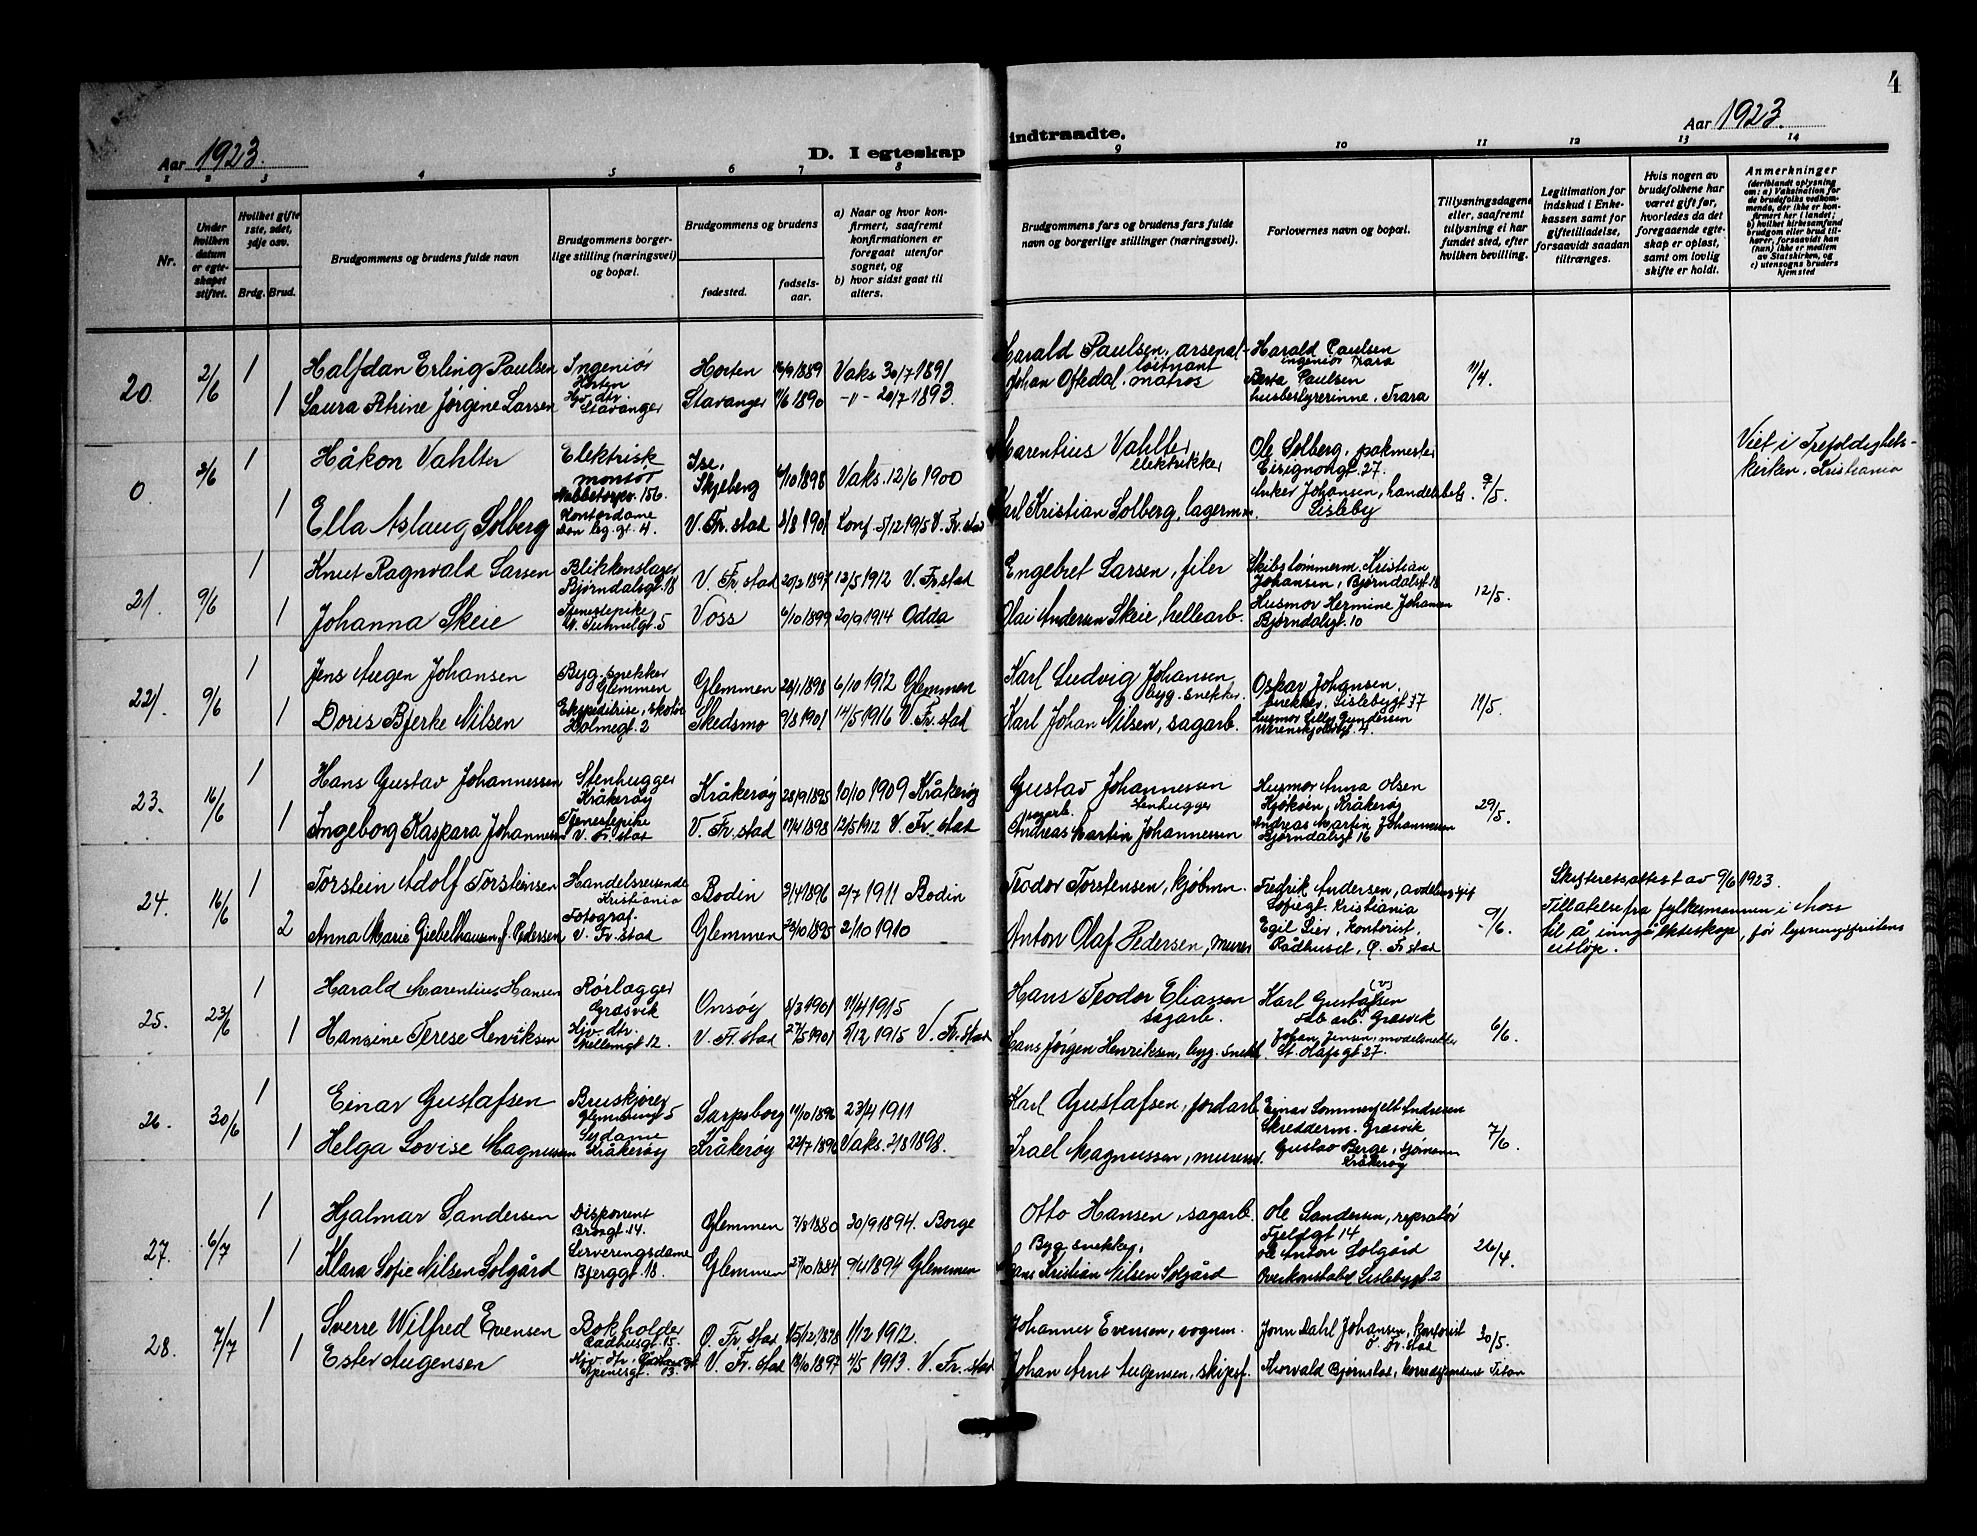 4
Aar 1923.
D. I egteskap
indtraadte.
Aar 1923.
1 2 3 4 5 6 7 8
9 10 11 12 13 14
Nr.
Under hvilken datum er egteskapet stiftet.
Hvilket gifte 1ste, 2det, 3dje osv.
Brdg. Brud.
Brudgommens og brudens fulde navn
Brudgommens borgerlige stilling (næringsvei) og bopæl.
Brudgommens og brudens
fødested.
fødselsaar.
a) Naar og hvor konfirmert, saafremt konfirmationen er foregaat utenfor sognet, og
b) hvor sidst gaat til alters.
Brudgommens fars og brudens fars fulde navn og borgerlige stillinger (næringsvei).
Forlovernes navn og bopæl.
Tillysningsdagene eller, saafremt tillysning ei har fundet sted, efter hvilken bevilling.
Legitimation for indskud i Enkekassen samt for giftetilladelse, forsaavidt saadan tiltrænges.
Hvis nogen av brudefolkene har været gift før, hvorledes da det foregaaende egteskap er opløst, samt om lovlig skifte er holdt.
Anmerkninger
(deriblandt oplysning om: a) Vaksination for de brudefolks vedkommende, der ikke er konfirmert her i landet; b) hvilket kirkesamfund brudgom eller brud tilhører, forsaavidt han (hun) ikke er medlem av Statskirken, og c) utensogns bruders hjemsted
20. 2/6 1 Halfdan Erling Paulsen Ingeniør Horten Horten 1889 Vaks 30/7 1891 Harald Paulsen, arsenalløitnant Harald Paulsen ingeniør Trara 11/4.
1 Laura Petrine Jørgine Larsen Hjv. dtr. Stavanger Stavanger 11/6 1890 -"- 20/7 1893. Johan Oftedal, matros Berta Paulsen husbestyrerinne, Trara
0. 2/6 1 Håkon Vahlter Elektrisk montør Nabbetorpv. 156. Ise, Skjeberg 6/10 1898 Vaks. 12/6 1900 Marentius Vahlter elektrikker Ole Solberg, pakmester 27. 9/5. Viet i Trefoldighetskirken, Kristiania
1 Ella Aslaug Solberg Kontordame gt. 4. V. Fr.stad 3/8 1901 Konf. 5/12 1915 V. Fr.stad Karl Kristian Solberg, lagerm. Anker Johansen, handelsbetj. Lisleby
21. 9/6 1 Knut Ragnvald Larsen Blikkenslager Bjørndalsgt. 18 V. Fr.stad 20/2 1897 12/5 1912 V. Fr.stad Engebret Larsen, filer Skibstømmerm. Kristian Johansen, Bjørndalsgt 18 12/5.
1 Johanna Skeie Tjenestepike 5 Voss 6/10 1899 20/9 1914 Odda Olai Andersen Skeie, hellearb. Husmor Hermine Johansen Bjørndalsgt. 10
22. 9/6 1 Jens Aagen Johansen Byg.snekker Glemmen Glemmen 28/1 1898 6/10 1912 Glemmen Karl Ludvig Johansen byg. snekker. Oskar Johansen, snekker, Lislebygt 37 11/5.
1 Doris Bjerke Nilsen Ekspeditrise, skotøi Holmegt. 2 Skedsmo 9/8 1901 14/5 1916 V. Fr.stad Karl Johan Nilsen, sagarb. Husmor Lilly Gundersen Werenskjoldsgt. 4.
23. 16/6 1 Hans Gustav Johannessen Stenhugger Kråkerøy Kråkerøy 28/9 1895 10/10 1909 Kråkerøy Gustav Johannesen stenhugger Husmor Anna Olsen Kjøkøen, Kråkerøy 29/5.
1 Ingeborg Kaspara Johannessen Tjenestepike V. Fr.stad V. Fr.stad 17/4 1898 12/5 1912 V. Fr.stad sagarb. Andreas Martin Johannessen Andreas Martin Johannessen Bjørndalsgt 16
24. 16/6 1 Torstein Adolf Torsteinsen Handelsreisende Kristiania Bodin 3/4 1896 2/7 1911 Bodin Teodor Torstensen, kjøbmn. Fredrik Andersen, avdelingssjef Sofiegt Kristiania 9/6. Skifteretsattest av 9/6 1923.
2 Anna Marie Giebelhausen f. Pedersen Fotograf. V. Fr.stad Glemmen 23/10 1895 2/10 1910 Anton Olaf Pedersen, murer Egil Lier, kontorist, Rådhuset, Ø. Fr.stad Tillatelse fra fylkesmannen i Moss til å inngå ekteskap, før lysningsfristens utløp.
25. 23/6 1 Harald Marentius Hansen Rørlægger Græsvik Onsøy 8/3 1901 11/4 1915 Hans Teodor Eliassen sagarb. Karl Gustafsen (v) fab. arb. Græsvik 6/6.
1 Hansine Terese Henriksen Hjv. dtr. 12. V. Fr.stad 27/5 1901 5/12 1915 V. Fr.stad Hans Jørgen Henriksen, byg. snekk. Johan Jensen, modelsnekker St. Olafsgt 27.
26. 30/6 1 Einar Gustafsen Bruskjører Glemmengt 5 Sarpsborg 11/10 1896 23/4 1911 Karl Gustafsen, jordarb. Einar Sommerfelt Andresen Skredderm. Græsvik 7/6.
1 Helga Lovise Magnussen Sydame Kråkerøy Kråkerøy 22/7 1896 Vaks. 2/8 1898. Israel Magnussen, murersv. Gustav Berge, sjømann Kråkerøy
27. 6/7 1 Hjalmar Sandersen Disponent Brogt 14. Glemmen 7/8 1880 30/9 1894. Borge Otto Hansen, sagarb. Ole Sandersen, repratør Fjeldgt 14 26/4.
1 Klara Sofie Nilsen Solgård Serveringsdame Bjerggt. 18. Glemmen 27/10 1884 9/4 1894 Glemmen Byg. snekker, Hans Kristian Nilsen Solgård Ole Anton Solgård Overkonstabel Lislebygt 2
28. 7/7 1 Sverre Wilfred Evensen Bokholder Raadhusgt 15. Ø. Fr.stad 15/12 1898 1/12 1912. Johannes Evensen, vognm. Jonn Dahl Johansen, kontorist Ø. Fr. stad 30/5.
1 Ester Augensen Hjv. dtr. V. Fr.stad 13/10 1897 4/5 1913. V. Fr.stad Johan Arnt Augensen, skipsf. Thorvald Bjørnstad, korrespondent Titan